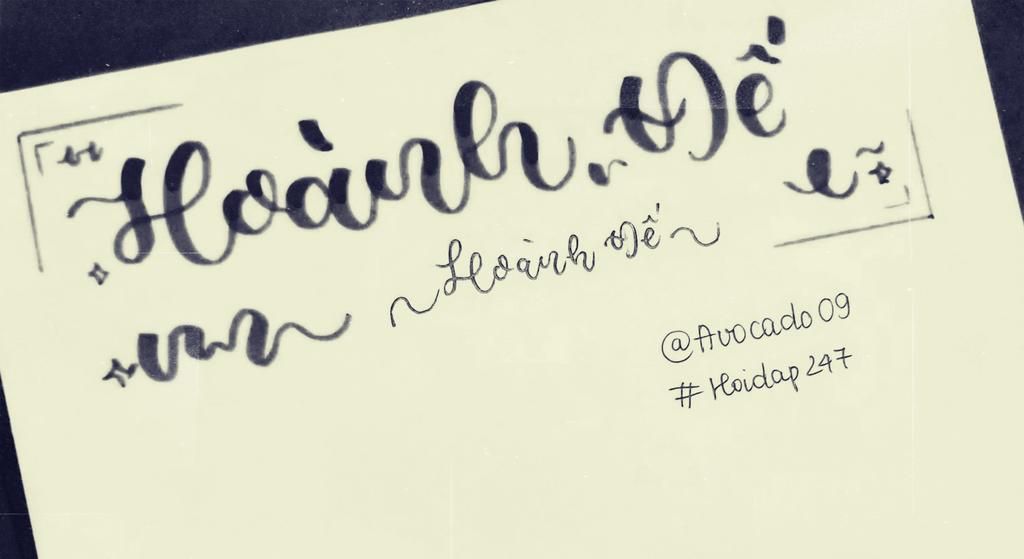 Hoành Đế
~ Hoành Đế ~
@Avocado 09
# Hoidap 247